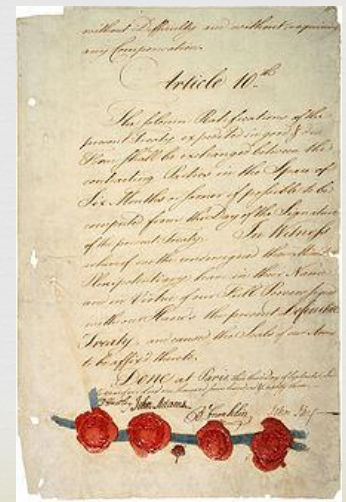 without Difficulty and without requiring
any Compensation.
Article 10.th
The solemn Ratifications of the
present Treaty expedited in good & due
Form shall be exchanged between the
contracting Parties in the Space of
Six Months or sooner if possible to be
computed from the Day of the Signature
of the present Treaty. In Witness
whereof we the undersigned their Ministers
Plenipotentiary have in their Name
and in Virtue of our Full Powers signed
with our Hands the present Definitive
Treaty, and caused the Seals of our Arms
to be affixed thereto.
Done at Paris, this third day of September
D Hartley John Adams. B Franklin John Jay